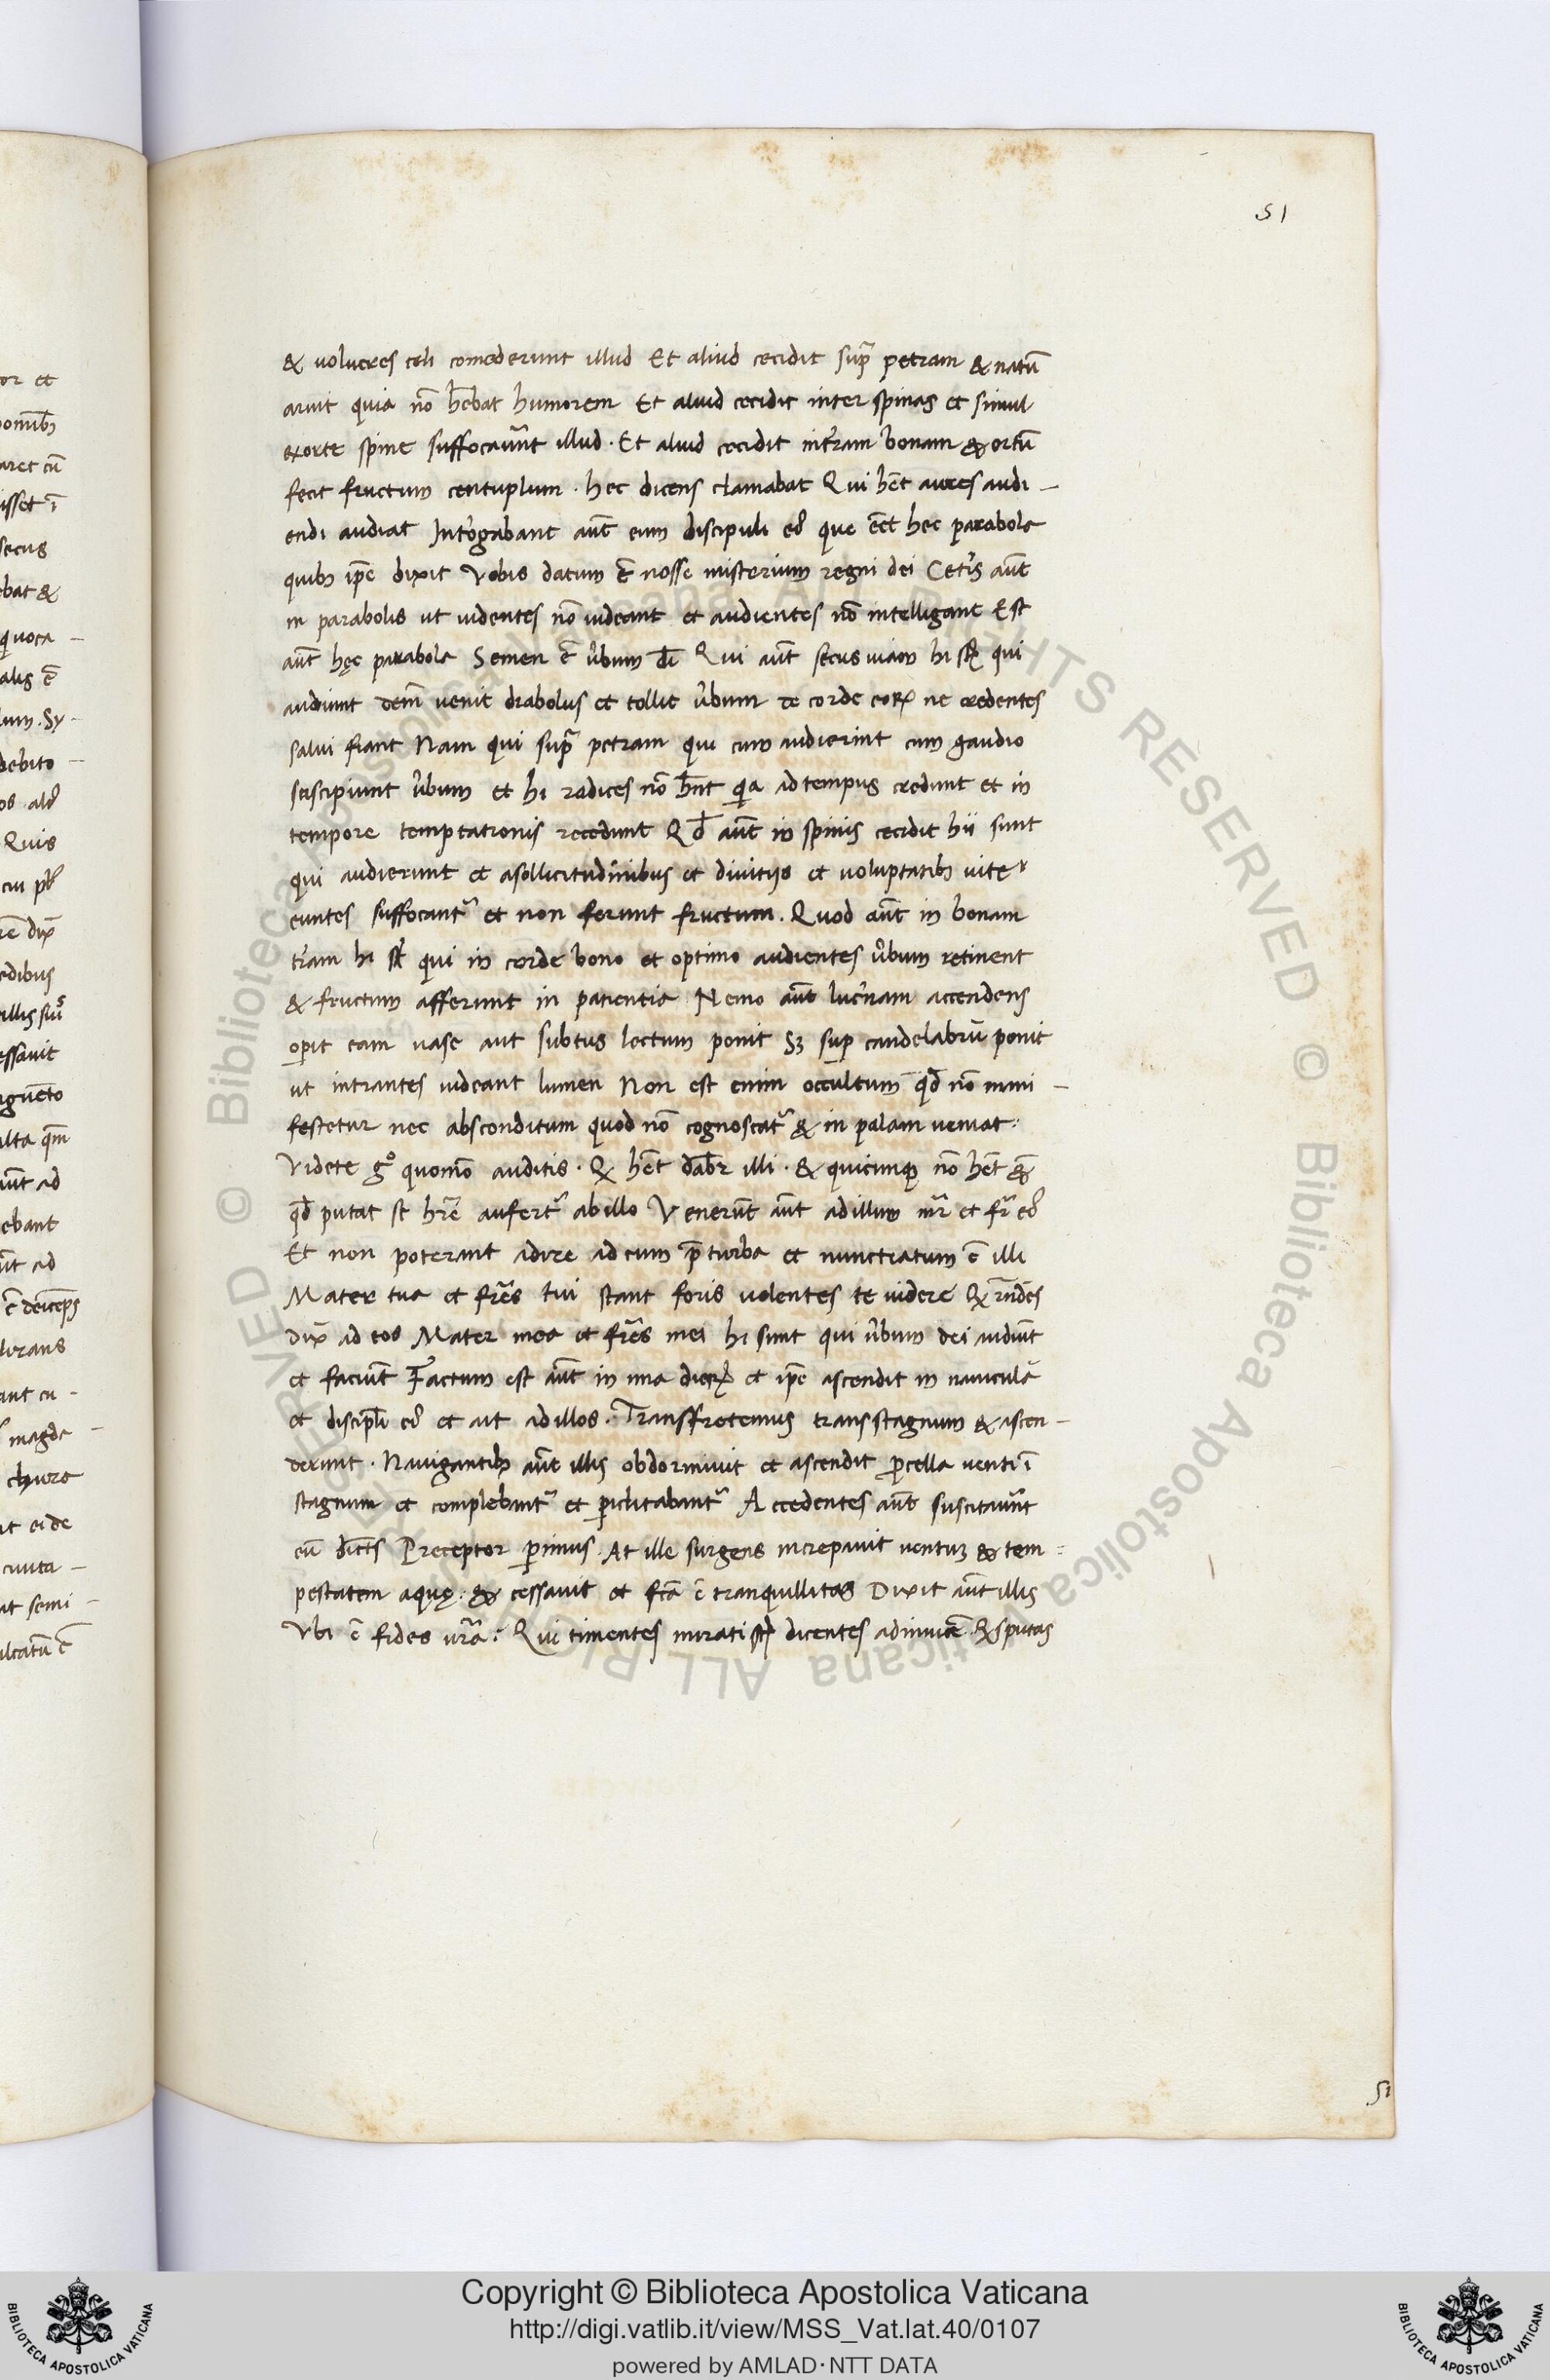 51
& uolucres celi comederunt illud Et aliud cecidit sup̄ petram & natū
aruit quia nō hēbat humorem Et aliud cecidit inter spinas et simul
exorte spine suffocauūt illud · Et aliud cecidit int̄ram bonam & ortū
fecit fructum centuplum · hec dicens clamabat Qui hēt aures audi-
endi audiat Int̄ogabant aūt eum discipuli eꝰ que eēt hec parabola
quibꝫ ip̄e dixit Vobis datum ē nosse misterium regni dei Cet̄is aūt
in parabolis ut uidentes nō uideant et audientes nō intelligant Est
aūt hęc parabola Semen ē ūbum dī Qui aūt secus uiam hi st̄ qui
audiunt deīn uenit diabolus et tollit ūbum de corde eoꝝ ne credentes
salui fiant Nam qui sup̄ petram qui cum audierint cum gaudio
suscipiunt ūbum et hi radices nō hn̄t qia ad tempus credunt et in
tempore temptationis recedunt Qd̄ aūt in spinis cecidit hii sunt
qui audierunt et asollicitudinibus et diuitijs et uoluptatibꝫ uitę
euntes suffocantᷣ et non ferunt fructum. Quod aūt in bonam
t̄ram hi st̄ qui in corde bono et optimo audientes ūbum retinent
& fructum afferunt in patientia Nemo aūt luc̄nam accendens
oꝑit eam uase aut subtus lectum ponit Sꝫ suꝑ candelabrū ponit
ut intrantes uideant lumen Non est enim occultum qd̄ nō mani-
festetur nec absconditum quod nō cognoscatᷣ & in palam ueniat
Videte gͦ quomō auditis · Q hēt dabr̄ illi · & quicunqꝫ nō hēt &
qd̄ putat se hr̄e aufertᷣ ab illo Venerūt aūt ad illum mr̄ et fr̄ eꝰ
Et non poterant adire ad eum p̄ turba et nunctiatum ē illi
Mater tua et fr̄es tui stant foris uolentes te uidere Q rn̄dēs
Dix̄ ad eos Mater mea et fr̄es mei hi sunt qui ūbum dei audiūt
et faciūt Factum est aūt in una dieꝝ et ip̄e ascendit in nauiculā
et discipl̄i eꝰ et ait ad illos · Transfretemus trans stagnum & ascen-
derunt · Nauigantibꝫ aūt illis obdormiuit et ascendit ꝓcella uenti ī
stagnum et complebantᷣ et ꝑiclitabantᷣ Accedentes aūt suscitauūt
eū dīcēts Preceptor ꝑimus. At ille surgens increpauit uentuꝫ & tem-
pestatem aquę: & cessauit et fc̄a ē tranquillitas Dixit aūt illis
Vbi ē fides ur̄a? Qui timentes mirati st̄ dicentes adinuicē Qsputas
51
or et
aret cū
isset ī
secus
ebat &
alis ē
lum. Sy-
debito-
Quis
edibus
essauit
ebant
magda-
cuita-
ut semi-
© Biblioteca Apostolica Vaticana ALL RIGHTS RESERVED © Biblioteca Apostolica Vaticana ALL RIGHTS RESERVED
BIBLIOTECA APOSTOLICA VATICANA
Copyright © Biblioteca Apostolica Vaticana
http://digi.vatlib.it/view/MSS_Vat.lat.40/0107
powered by AMLAD·NTT DATA
BIBLIOTECA APOSTOLICA VATICANA